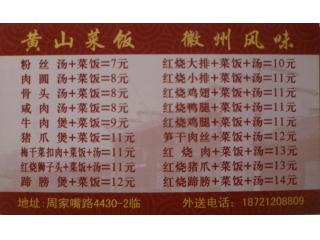 黄山菜饭 徽州风味
粉丝汤+菜饭=7元 红烧大排+菜饭+汤=10元
肉圆汤+菜饭=8元 红烧小排+菜饭+汤=11元
骨头汤+菜饭=8元 红烧鸡翅+菜饭+汤=11元
咸肉汤+菜饭=8元 红烧鸡腿+菜饭+汤=11元
牛肉煲+菜饭=9元 红烧鸭腿+菜饭+汤=11元
猪爪煲+菜饭=11元 笋干肉丝+菜饭+汤=12元
梅干菜扣肉+菜饭+汤=11元 红烧肉+菜饭+汤=13元
红烧狮子头+菜饭+汤=11元 红烧猪爪+菜饭+汤=13元
蹄膀煲+菜饭=12元 红烧蹄膀+菜饭+汤=14元
地址:周家嘴路4430-2临 外送电话:18721208809